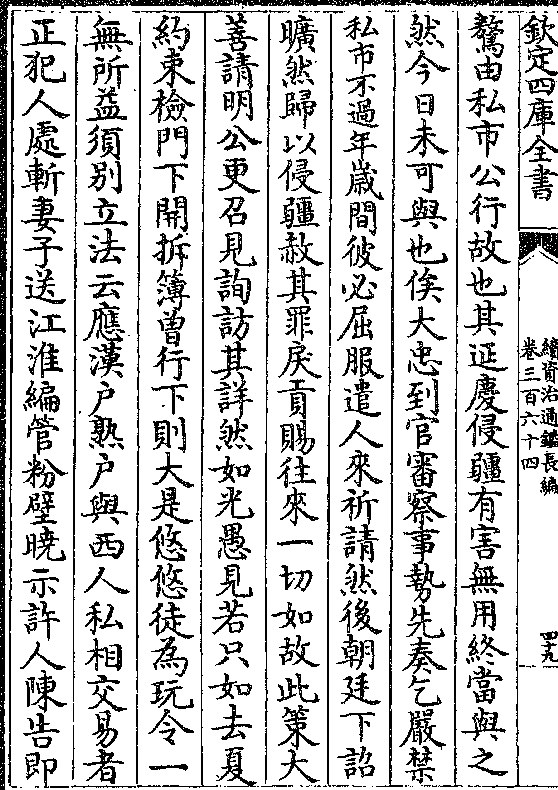 欽定四庫全書
續資治通鑑長編
卷三百六十四
四九
驁由私市公行故也其延慶侵疆有害無用終當與之
然今日未可與也俟大忠到官審察事勢先奏乞嚴禁
私市不過年歲間彼必屈服遣人來祈請然後朝廷下詔
曠然歸以侵疆赦其罪戾貢賜往來一切如故此策大
善請明公更召見詢訪其詳然如光愚見若只如去夏
約束檢門下開拆簿曾行下則大是悠悠徒為玩令一
無所益須別立法云應漢户熟户與西人私相交易者
正犯人處斬妻子送江淮編管粉壁曉示許人陳告即